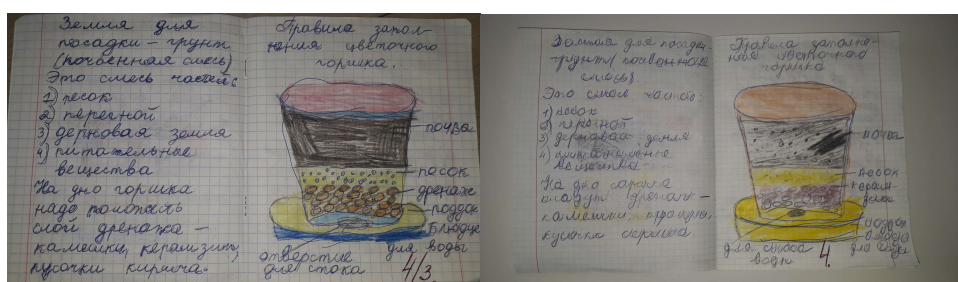 Земля для
посадки – грунт
(почвенная смесь)
Это смесь частей:
1) песок
2) перегной
3) дерновая земля
4) питательные
вещества
На дно горшка
надо
слой дренажа –
камешки, керамзит,
кусочки кирпича.
Правила запол-
нения цветочного
горшка.
почва
песок
дренаж
поддон
блюдце
для воды
отверстие
для стока
4/3.
Земля для посадки
грунт
смесь
Это смесь
1) песок
2) перегной
3) дерновая земля
4)
вещества
На дно
кладут дренаж –
камешки,
кусочки
Правила заполне-
ния цветочного
горшка
почва
песок
керам-
поддон
для воды
для стока
воды
4.